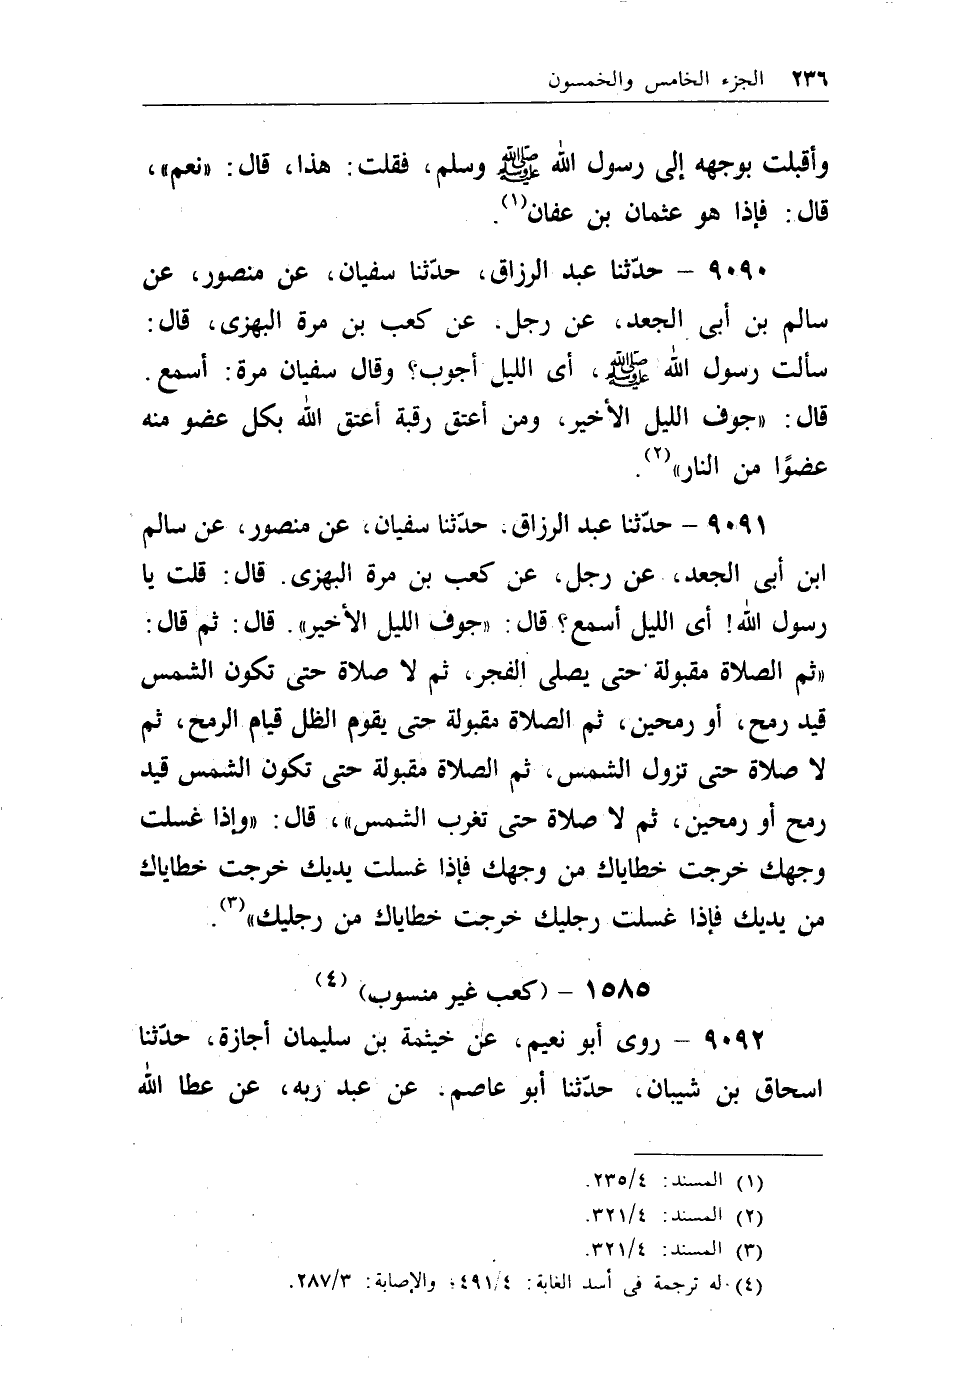 ٢٣٦ الجزء الخامس والخمسون
وأقبلت بوجهه إلى رسول الله ﷺ وسلم، فقلت: هذا، قال: «نعم»،
قال: فإذا هو عثمان بن عفان(١).
٩٠٩٠ - حدّثنا عبد الرزاق، حدّثنا سفيان، عن منصور، عن
سالم بن أبى الجعد، عن رجل. عن كعب بن مرة البهزى، قال:
سألت رسول الله ﷺ، أى الليل أجوب؟ وقال سفيان مرة: أسمع.
قال: «جوف الليل الأخير، ومن أعتق رقبة أعتق الله بكل عضو منه
عضوًا من النار»(٢).
٩٠٩١ - حدّثنا عبد الرزاق. حدّثنا سفيان، عن منصور، عن سالم
ابن أبى الجعد، عن رجل، عن كعب بن مرة البهزى. قال: قلت يا
رسول الله! أى الليل أسمع؟ قال: «جوف الليل الأخير». قال: ثم قال:
«ثم الصلاة مقبولة حتى يصلى الفجر، ثم لا صلاة حتى تكون الشمس
قيد رمح، أو رمحين، ثم الصلاة مقبولة حتى يقوم الظل قيام الرمح، ثم
لا صلاة حتى تزول الشمس، ثم الصلاة مقبولة حتى تكون الشمس قيد
رمح أو رمحين، ثم لا صلاة حتى تغرب الشمس»، قال: «وإذا غسلت
وجهك خرجت خطاياك من وجهك فإذا غسلت يديك خرجت خطاياك
من يديك فإذا غسلت رجليك خرجت خطاياك من رجليك»(٣).
١٥٨٥ - (كعب غير منسوب) (٤)
٩٠٩٢ - روى أبو نعيم، عن خيثمة بن سليمان أجازة، حدّثنا
اسحاق بن شيبان، حدّثنا أبو عاصم. عن عبد ربه، عن عطا الله
(١) المسند: ٢٣٥/٤.
(٢) المسند: ٣٢١/٤.
(٣) المسند: ٣٢١/٤.
(٤) له ترجمة فى أسد الغابة: ٤٩١/٤؛ والإصابة: ٢٨٧/٣.